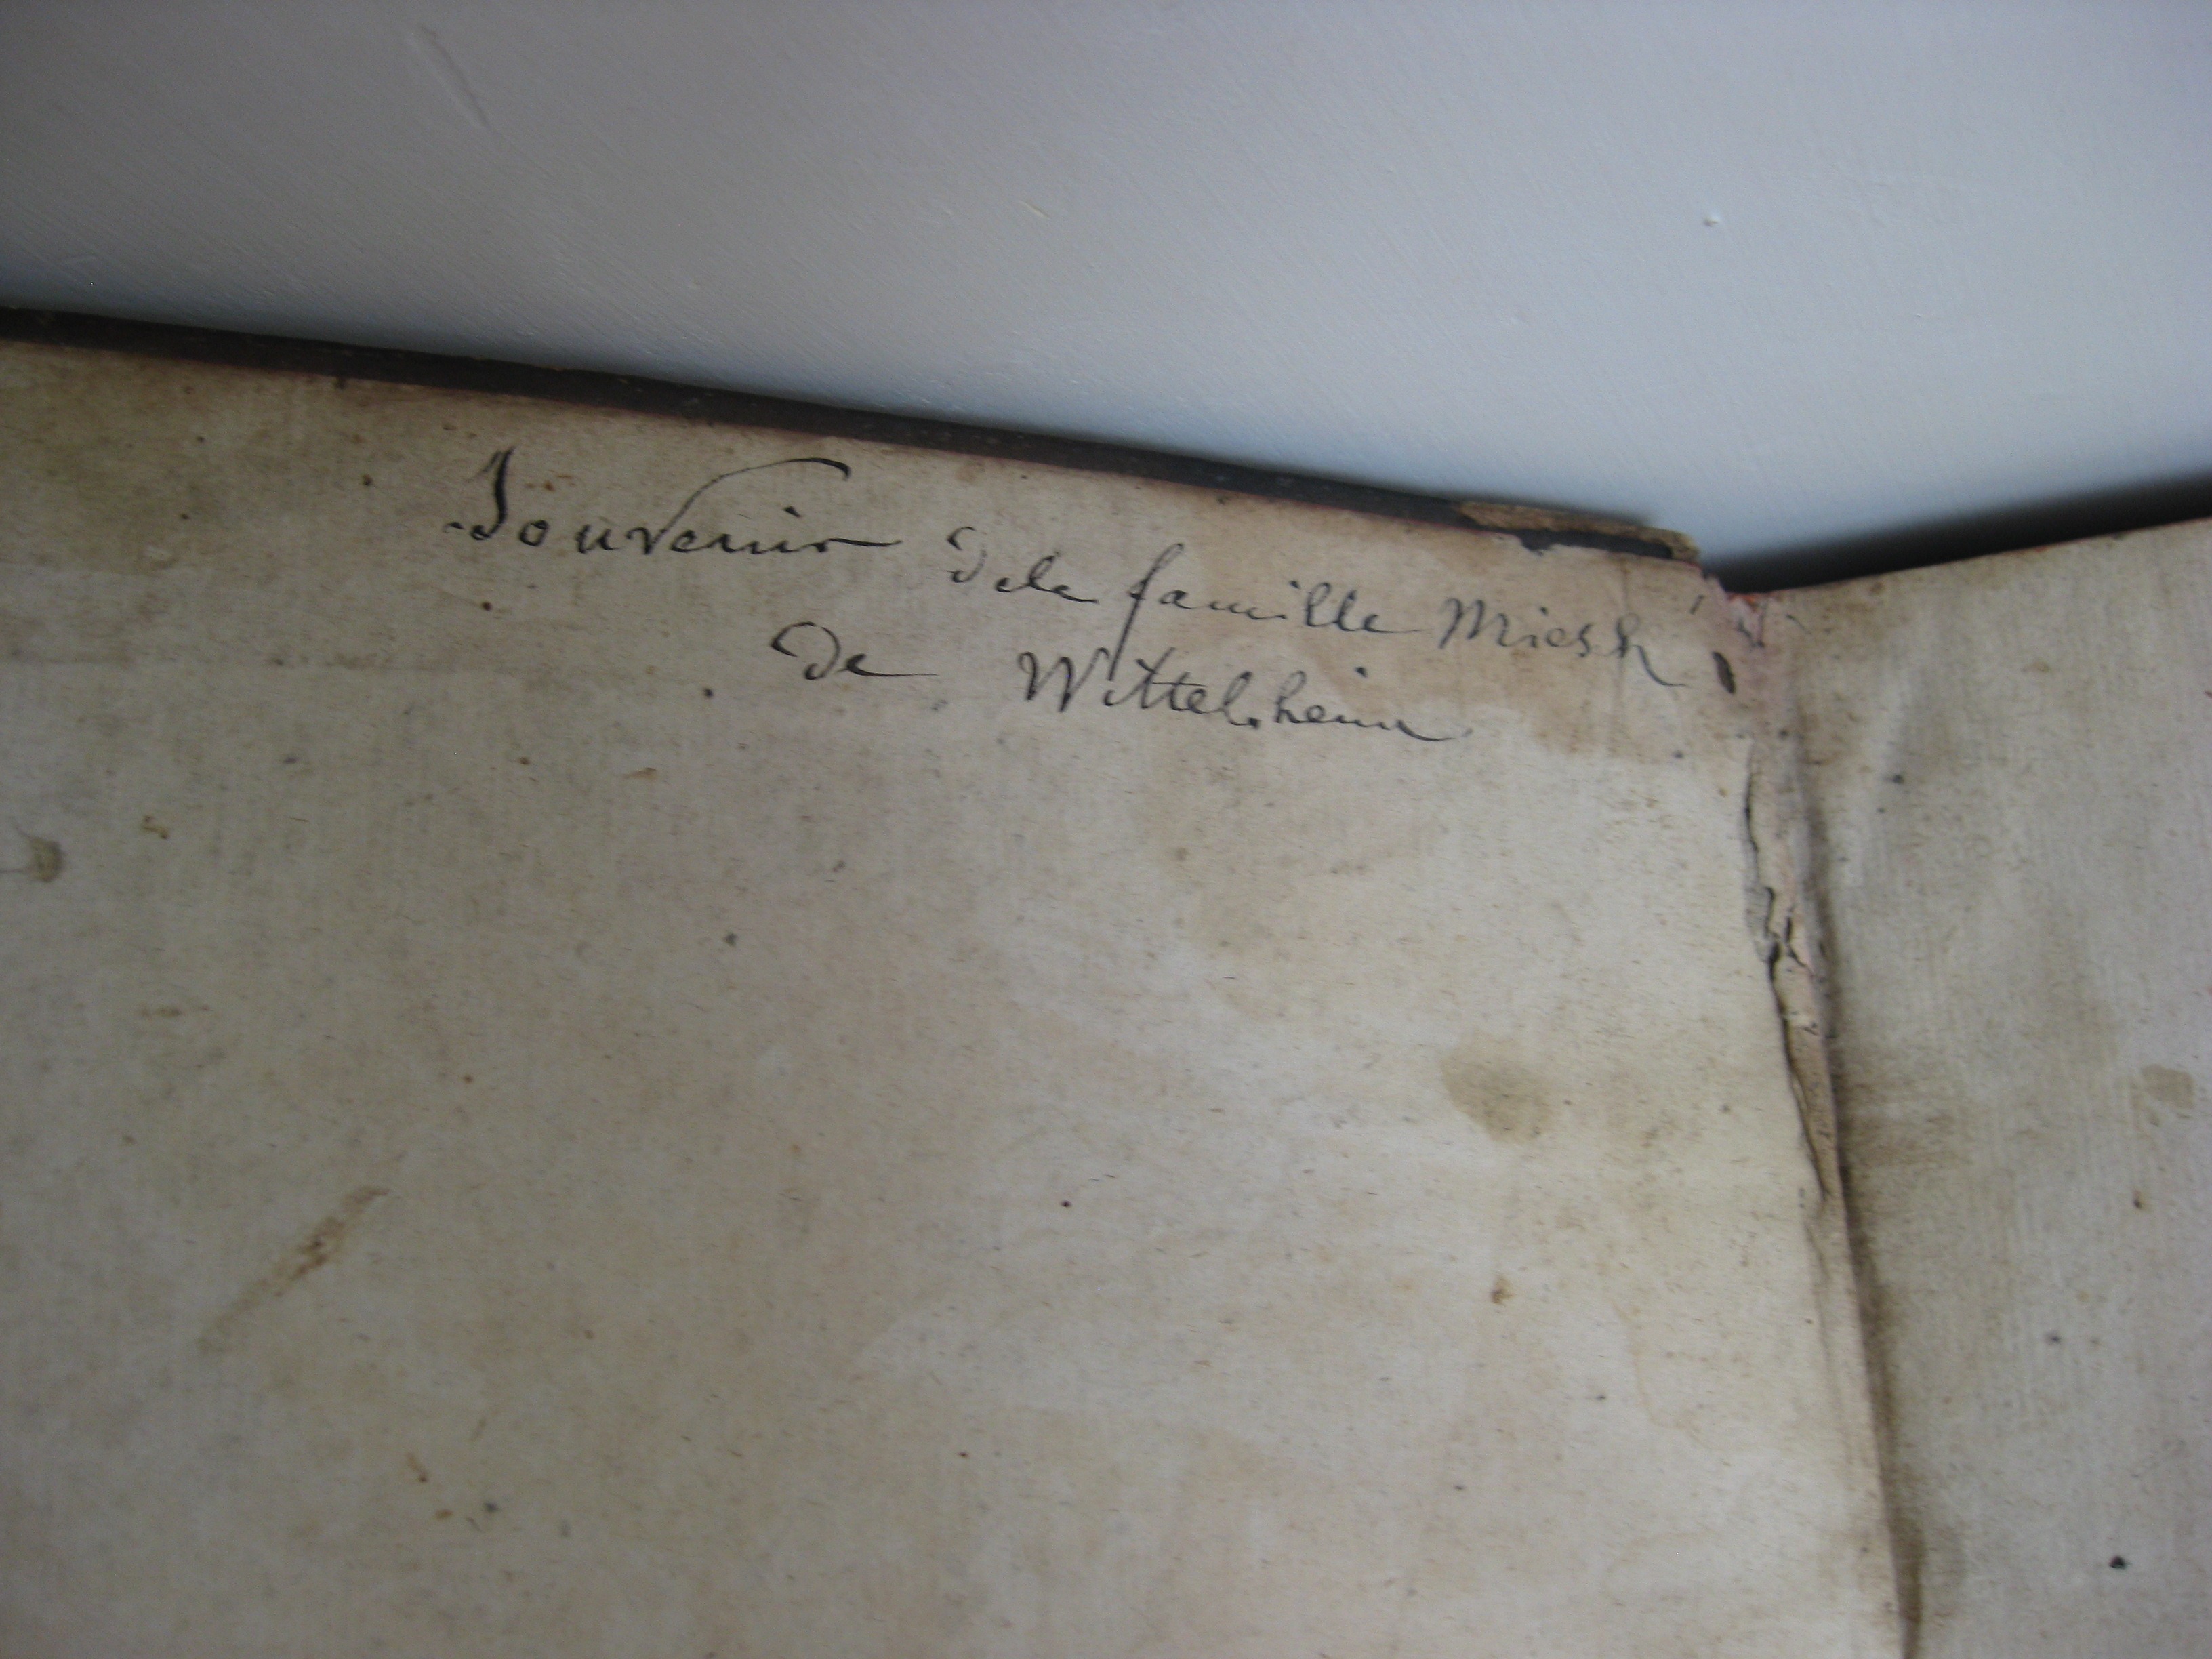 Souvenir dela famille Miesch
de Wittelsheim